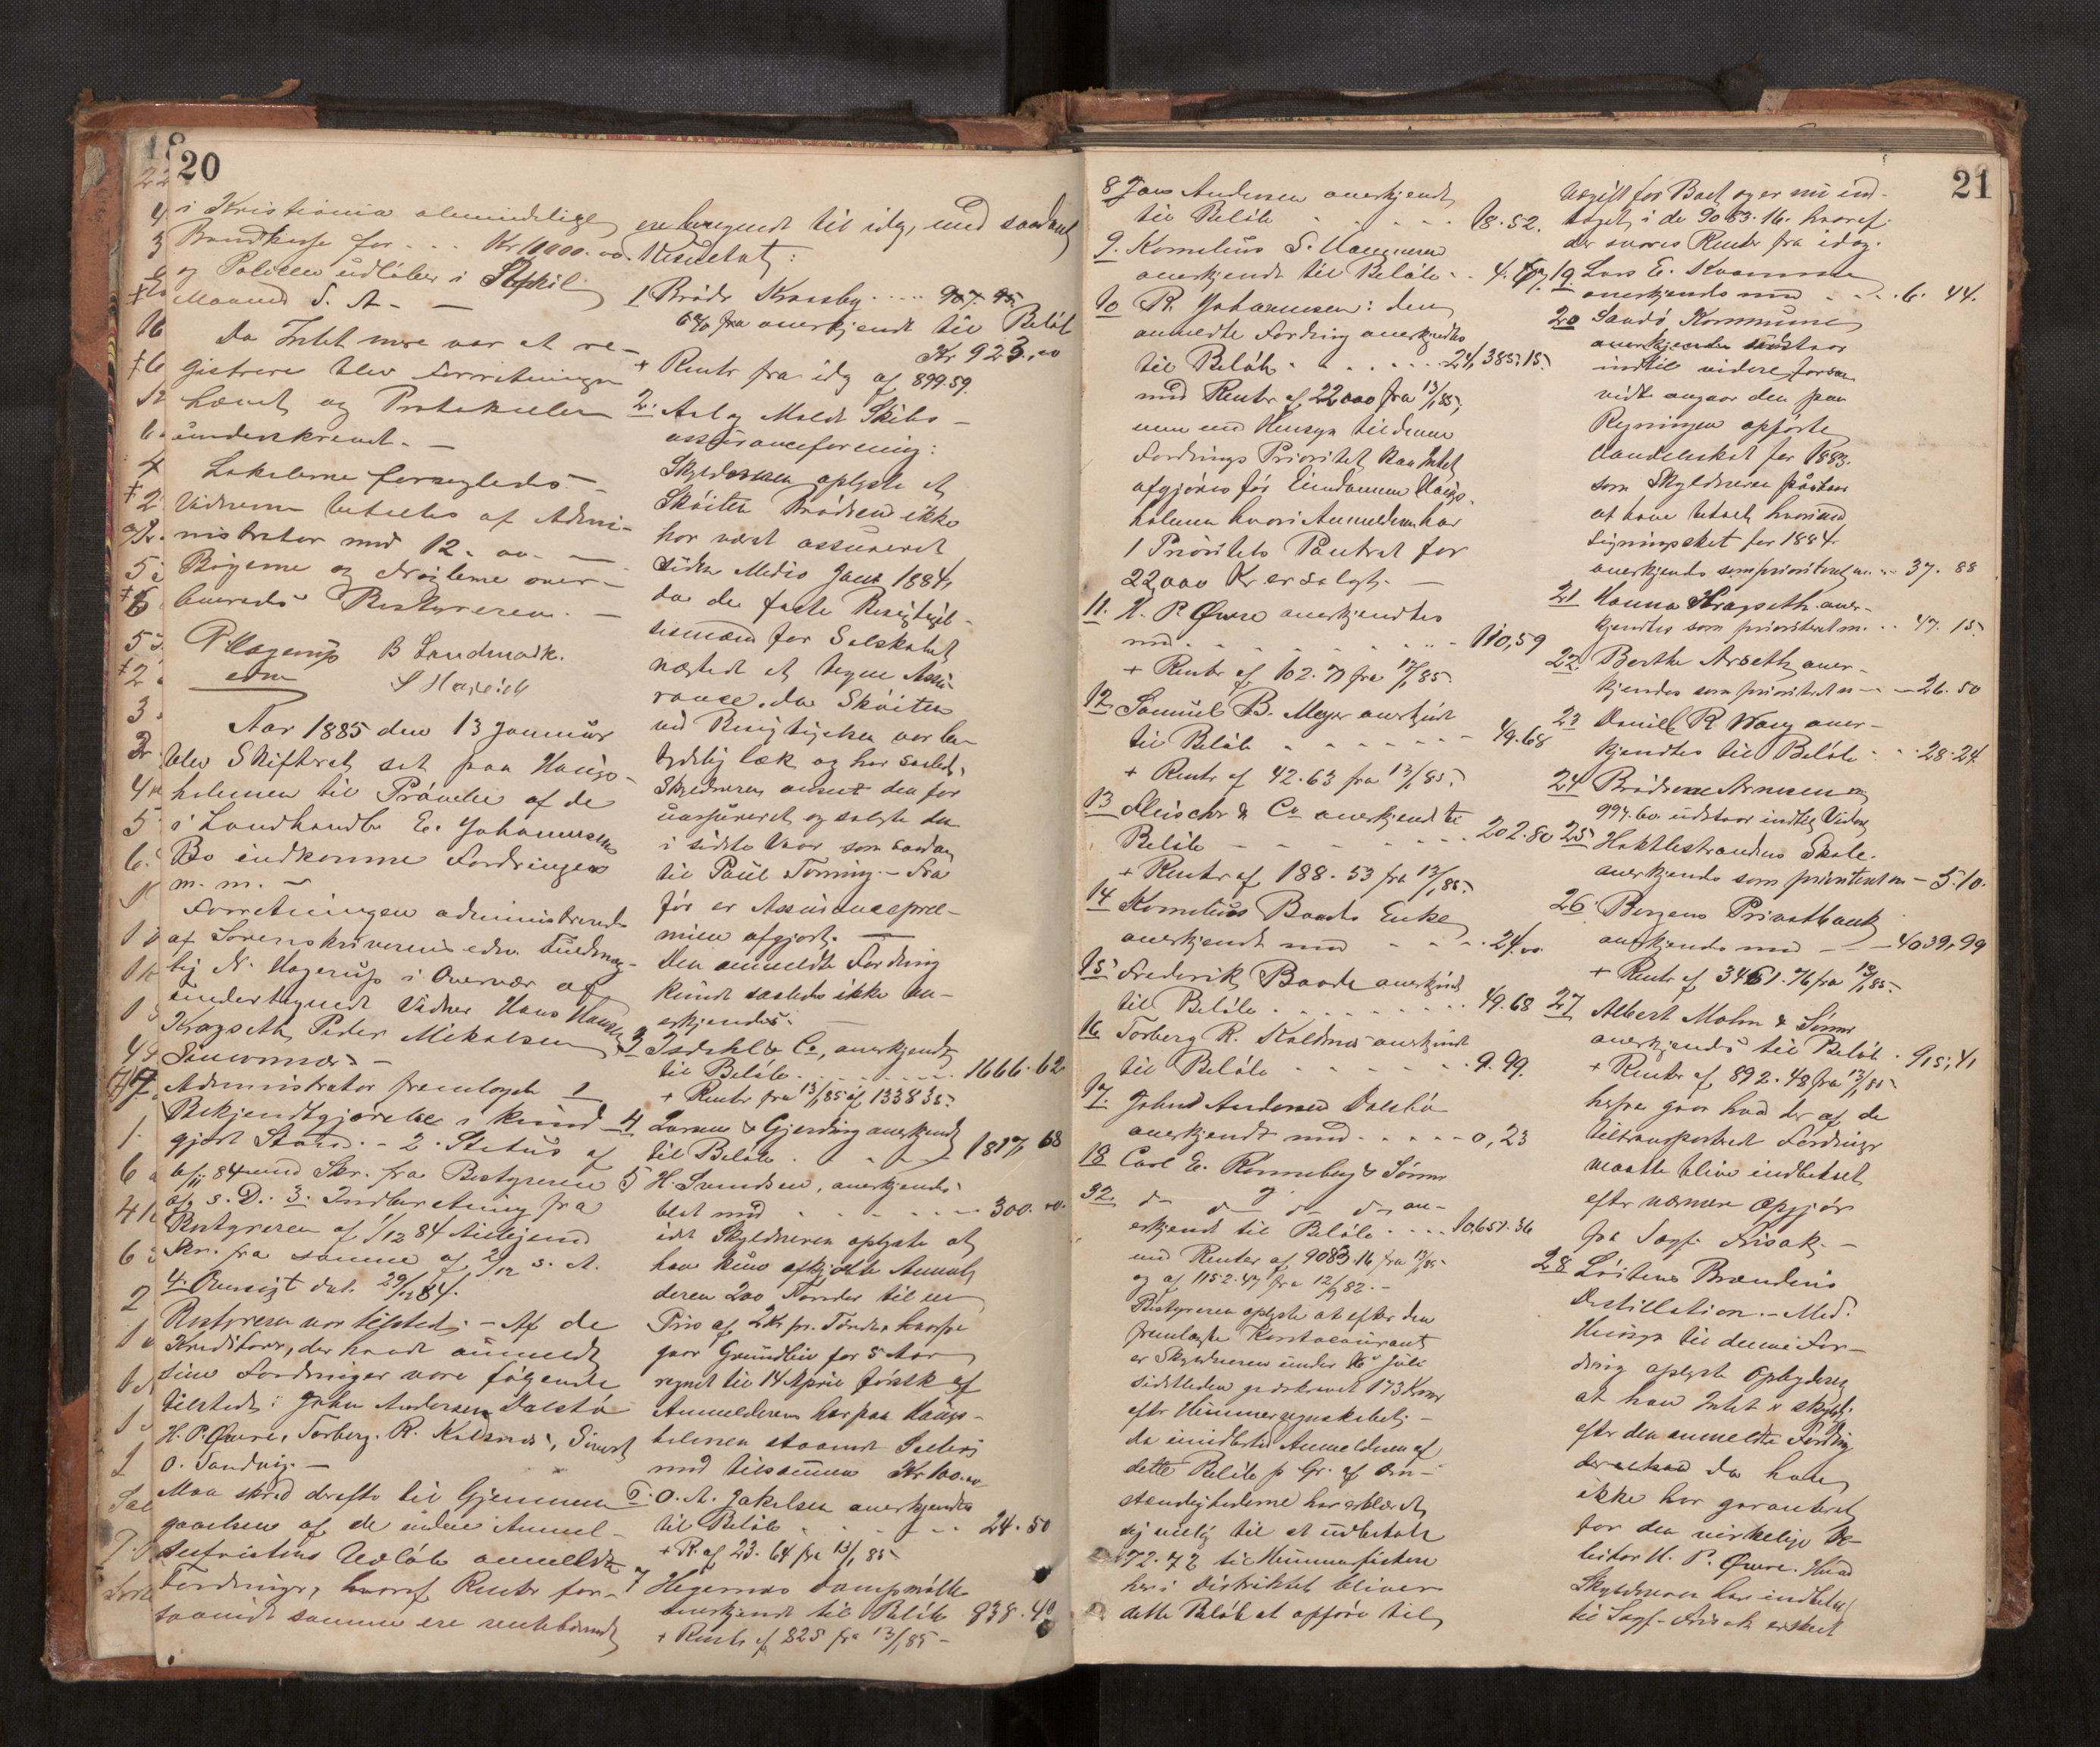 20
i Kristiania almindelige
Brandkasse for . . . Kr 11000.00.
og Policen udløber i April
Maaned d. A. —
Da Intet mere var at re-
gistrere blev Forretningen
hævet og Protokollen
underskrevet. —
Lokalerne forsegledes —
Vidnerne betaltes af Admi-
nistrator med 12.00. —
Bøgerne og Nøglerne over-
leveredes Bestyreren. —
Hagerup B Landmark.
edm
Aar 1885 den 13 Januar
blev Skifteret sat paa Haugs-
holmen til Prøvelse af de
i Landhandler E. Johannessens
Bo indkomne Fordringer
m. m. —
Forretningen administreredes
af Sorenskriverens edsv. Fuldmæg-
tig N. Hagerup i Overvær af
undertegnede Vidner Hans Hansen
Kragseth, Peder Mikalsen
Administrator fremlagde 1
Bekjendtgjørelse i kund-
gjort Stand. - 2. Status af
6/11 84 med Skr. fra Bestyreren
af s. D. 3. Indberetning fra
Bestyreren af 1/12 84 tilligemed
Skr. fra samme af 2/12 s. A.
4. Oversigt dat. 29/12 84.
Bestyreren var tilstede. - Af de
Kreditorer, der havde anmeldt
sine Fordringer vare følgende
tilstede: John Andersen Dalsbø
H. P. Øvre, Torberg R. Koldsnes, Sivert
O. Sandvig. —
Man skred derefter til Gjennem-
gaaelsen af de inden Anmel-
delsesfristens Udløb anmeldte
Fordringer, hvoraf Renter for-
saavidt samme ere rentebærende
ere beregnede til idag, med saadant
Resultat:
1 Brødr Krossby . . . . 907.95
6% fra anerkjendt til Beløb
Kr 923.00
+ Renter fra idag af 899.59.
2. Aal og Molde Skibs-
assuranceforening:
Skyldneren oplyste at
Skøiten Brødrene ikke
har været assureret
siden Medio Janr 1884,
da de faste Besigtigel-
sesmænd for Selskabet
nægtede at tegne Assu-
rance, da Skøiten
ved Besigtigelsen var be-
tydelig læk og har saaledes
Skyldneren anseet den for
uassureret og solgte den
i sidste Vaar som saadan
til Paul Tonning. - Fra
før er Assurancepræ-
mien afgjort. —
Den anmeldte Fordring
kunde saaledes ikke an-
erkjendes. —
3 Isdahl & Co, anerkjendt
til Beløb . . . . . . . . 1666.62
+ Renter fra 13/1 85 af 1338 35.
4 Larsen & Gjerding anerkjendt
til Beløb . . . . 1817, 68
5 H. Svendsen, anerkjendes
blot med . . . . . . 300.00.
idet Skyldneren oplyste at
have kun afkjøbt Anmel-
deren 200 Tønder til en
Pris af 2 Kr pr. Tønde, hvorfra
gaar Grundleie for 5 Aar
regnet til 14 April først k. af
Anmelderens her paa Haugs-
holmen staaende Salteri
med tilsammen Kr 100.00
6. O. A. Jakobsen anerkjendes
til Beløb . . . . . 24.50
+ R. af 23.64 fra 13/1 85
7 Hegernes Dampmølle
anerkjendt til Beløb 838.40
+ Rente af 825 fra 13/1 85 —
21
8 Jens Andersen anerkjendt
til Beløb . . . . . . 18.52.
9. Kornelius S. Vaagnes
anerkjendt til Beløb . . 4.
10 R. Johannessen: den
anmeldte Fordring anerkjendtes
til Beløb . . . . . . 24,385,15.
med Renter af 22000 fra 13/1 85;
men med Hensyn til denne
Fordrings Prioritet kan Intet
afgjøres før Eiendommen Haugs-
holmen hvori Anmelderen har
1 Prioritets Panteret for
22,000 Kr er solgt. —
11. H. P. Øvre anerkjendtes
med . . . . . . . . . 110,59
+ Renter af 102.70 fra 13/1 85.
12 Samuel B. Meyer anerkjendt
til Beløb . . . . . . . 49.68
+ Renter af 42.63 fra 13/1 85.
13 Fleischer & Co anerkjendt til
Beløb — — — . . . 202.80
+ Renter af 188.53 fra 13/1 85.
14 Kornelius Baades Enke
anerkjendt med . . . . 24.00
15 Frederik Baade anerkjendt
til Beløb . . . . . . . 49.68
16 Torberg R. Koldsnes anerkjendt
til Beløb . . . . . . . 9.99.
17. John Andersen Dalsbø
anerkjendt med . . . . 0,23
18 Carl E. Rønneberg & Sønner
32. do do do an-
erkjendt til Beløb . . . . 10,651.36
med Renter af 9083.16 fra 13/1 85
og af 1152.47 fra 12/9 82. —
Bestyreren oplyste at efter den
fremlagte Kontocourant
er Skyldneren under 16 Juli
sidstleden godskrevet 173 Kroner
efter Hummerregnskabet; —
da imidlertid Anmelderen af
dette Beløb p. Gr. af Om-
stændighederne har erklæret
sig villig til at udbetale
172.72 til Hummerfiskere
her i Distriktet bliver
dette Beløb at opføre til
Udgift for Boet og er nu ind-
taget i de 9083.16. hvoraf
der svares Renter fra idag.
19. Lars E. Kvamme
anerkjendes med . . . . 6. 44.
20 Sandø Kommune
udstaar
indtil videre forsaa-
vidt angaar den paa
Regningen opførte
Handelsskat for 1883.
som Skyldneren paastaar
at have betalt hvorimod
Ligningsskat for 1884.
anerkjendes som prioriteret m. . . 37.88
21 Hanna Kragseth aner-
kjendtes som prioriteret m. . . 47.15.
22 Berthe Aarseth aner-
kjendes som prioriteret m — — 26.50
23 Daniel R Waag aner-
kjendtes til Beløb . . . 28.24
24 Brødrene Arnesen
994.60 udstaar indtil Videre
25 Hakallestrandens Skole.
anerkjendes som prioriteret m — 5.10.
26 Bergens Privatbank
anerkjendes med — — 4039,99
+ Renter af 3461.76 fra 13/1 85.
27 Albert Mohn & Sønner
anerkjendes til Beløb . 915,41
+ Renter af 892.48 fra 13/1 85.
herfra gaar hvad der af de
tiltransporterede Fordringer
maatte blive indbetalt
efter nærmere Opgjør
fra Sagf. Frisak. —
28 Løitens Brænderis
Destillation. — Med
Hensyn til denne For-
dring oplyste Opbyderen
at han Intet er skyldig
efter den anmeldte Fordring
da han
ikke har garanteret
for den virkelige De-
bitor H. P. Øvre. Hvad
Skyldneren har indbetalt
til Sagf. Frisak er skeet